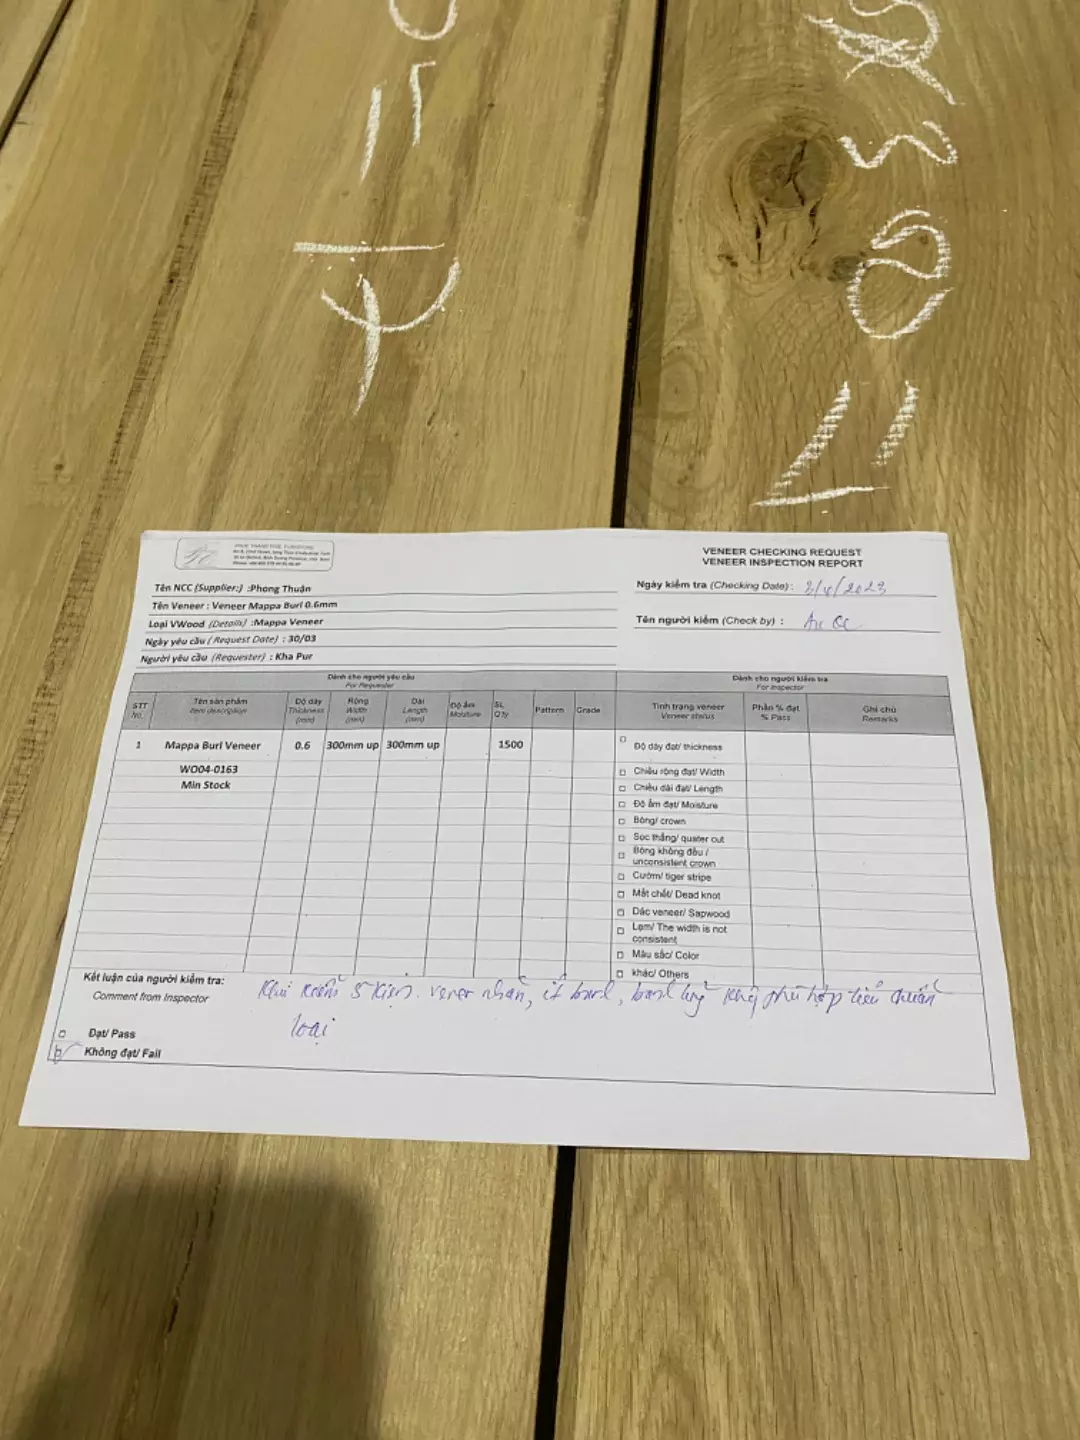 VENEER CHECKING REQUEST
VENEER INSPECTION REPORT
Tên NCC (Supplier:) :Phong Thuận
Tên Veneer : Veneer Mappa Burl 0.6mm
Loại VWood (Details) :Mappa Veneer
Ngày yêu cầu (Request Date) : 30/03
Người yêu cầu (Requester) : Kha Pur
Ngày kiểm tra (Checking Date) : 3/4/2023
Tên người kiểm (Check by) :
Dành cho người yêu cầu
For Requester
Dành cho người kiểm tra
For Inspector
STT
No.
Tên sản phẩm
Item description
Độ dày
Thickness
(mm)
Rộng
Width
(mm)
Dài
Length
(mm)
Độ ẩm
Moisture
SL
Q'ty
Pattern
Grade
Tình trạng veneer
Veneer status
Phần % đạt
% Pass
Ghi chú
Remarks
1 Mappa Burl Veneer 0.6 300mm up 300mm up 1500
WO04-0163
Min Stock
Độ dày đạt/ thickness
Chiều rộng đạt/ Width
Chiều dài đạt/ Length
Độ ẩm đạt/ Moisture
Bông/ crown
Sọc thẳng/ quater cut
Bông không đều /
unconsistent crown
Cườm/ tiger stripe
Mắt chết/ Dead knot
Dác veneer/ Sapwood
Lẹm/ The width is not
consistent
Màu sắc/ Color
khác/ Others
Kết luận của người kiểm tra:
Comment from Inspector
kiểm 5 kiện. vener nhăn, ít burl, burl phù hợp tiêu chuẩn
loại
Đạt/ Pass
Không đạt/ Fail